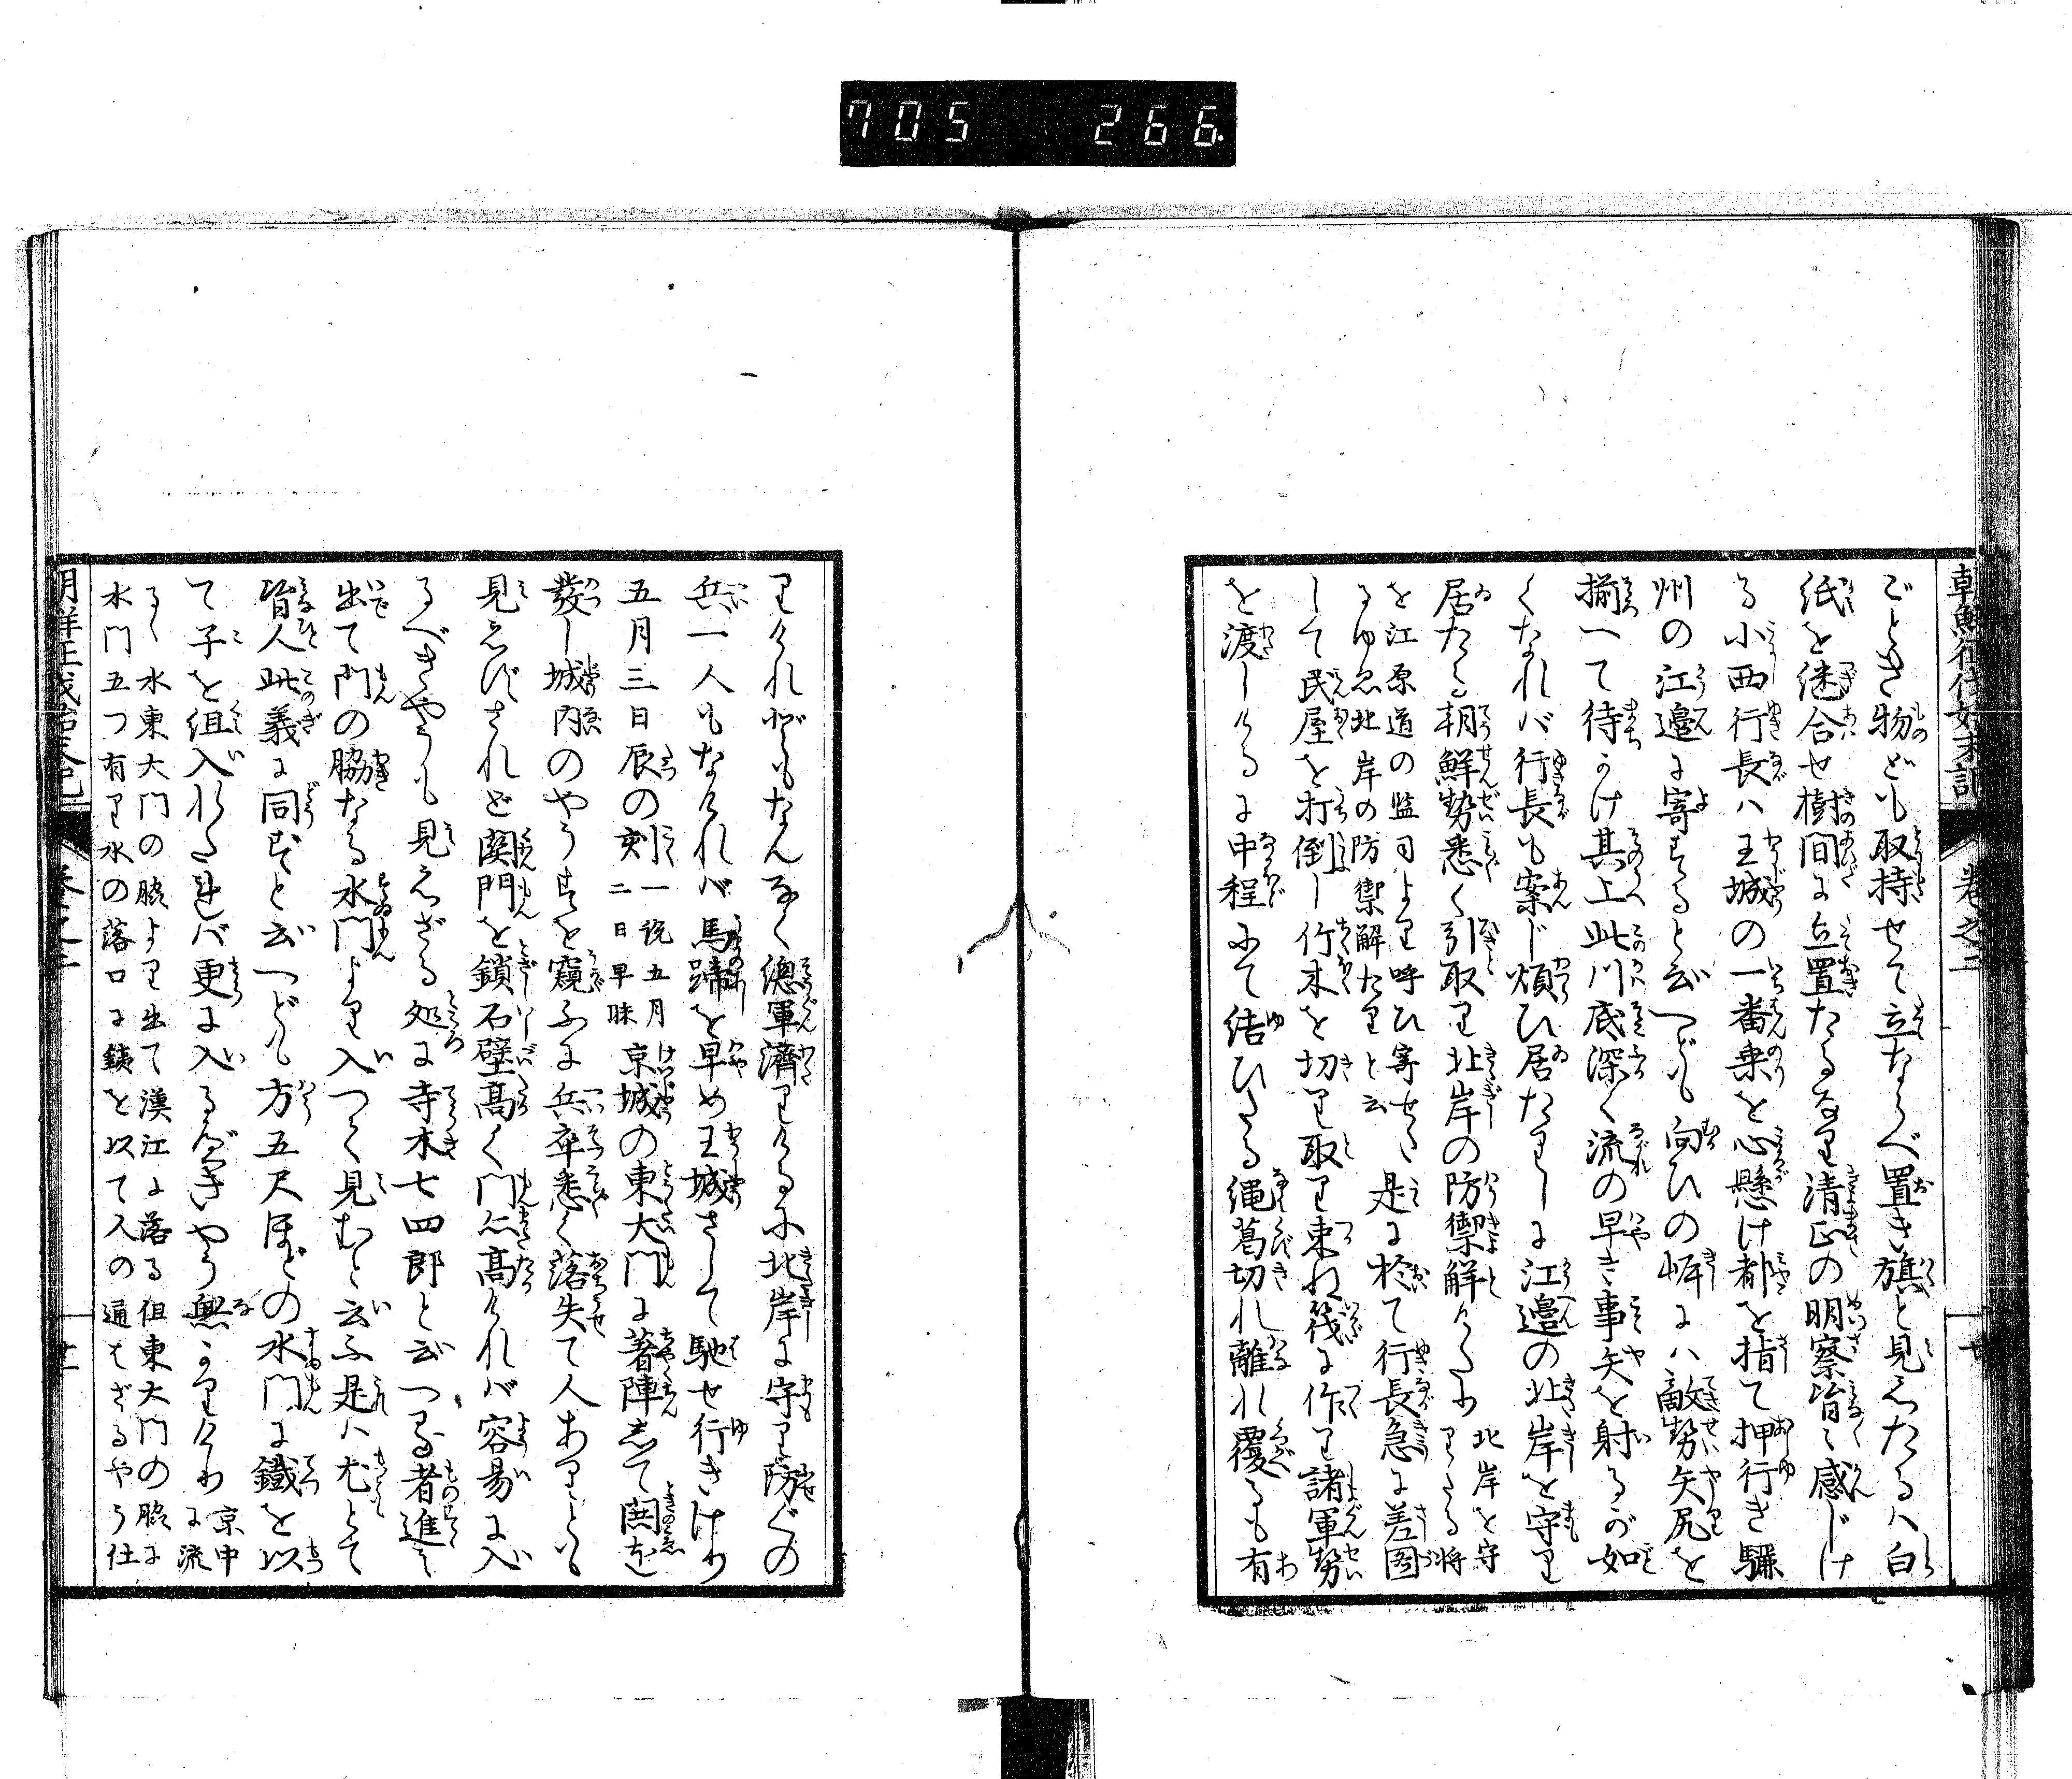 705 266.
朝鮮征伐始末記 巻之二
ごとき物ども取持せて立ならべ置き旗と見えたるハ白
紙を継合せ樹間に立置たるなり清正の明察皆々感じけ
る小西行長ハ王城の一番乗を心懸け都を指て押行き驪
州の江邉に寄すると云へども向ひの岸にハ敵勢矢尻を
揃へて待うけ其上此川底深く流の早き事矢を射るが如
くなれバ行長も案じ煩ひ居たりしに江邉の北岸を守り
居たる朝鮮勢悉く引取り北岸の防禦解けるに
北岸を守
りたる将
を江原道の監司より呼ひ寄せ
るゆゑ北岸の防禦解たりと云
是に於て行長急に差図
して民屋を打倒し竹木を切り取り束ね筏に作り諸軍勢
を渡しけるに中程にて結ひたる縄葛切れ離れ覆るも有
りけれどもたんなく總軍濟りけるに北岸に守り防ぐの
兵一人もなけれバ馬蹄を早め王城さして馳せ行きけり
五月三日辰の刻
一説五月
二日早昧
京城の東大門に著陣して鬨を
發し城内のやうすを窺ふに兵卒悉く落失て人ありとも
見えずされど関門を鎖石壁髙く門亦髙けれバ容易に入
るべきやうも見えざる処に寺木七四郎と云つる者進み
出て門の脇なる水門より入つて見むと云ふ是ハ尤とて
皆人此義に同ずと云へども方五尺ほどの水門に鐵を以
て子を组入れたれバ更に入るべきやう無かりけり
京中
に流
るゝ水東大門の脇より出て漢江に落る但東大門の脇に
水門五つ有り水の落口に鉄を以て人の通はざるやう仕